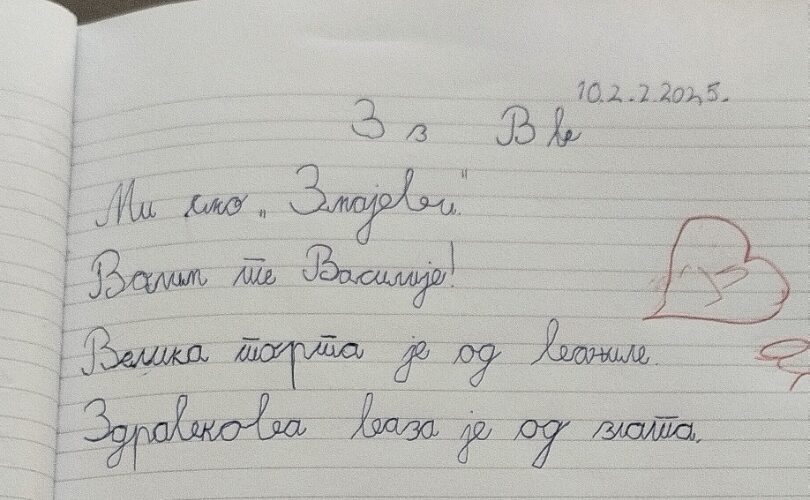 10.2.2.2025.
З з В в
Ми смо „Змајеви“
Волим те Василије!
Велика торта је од ваниле.
Здравкова ваза је од злата.